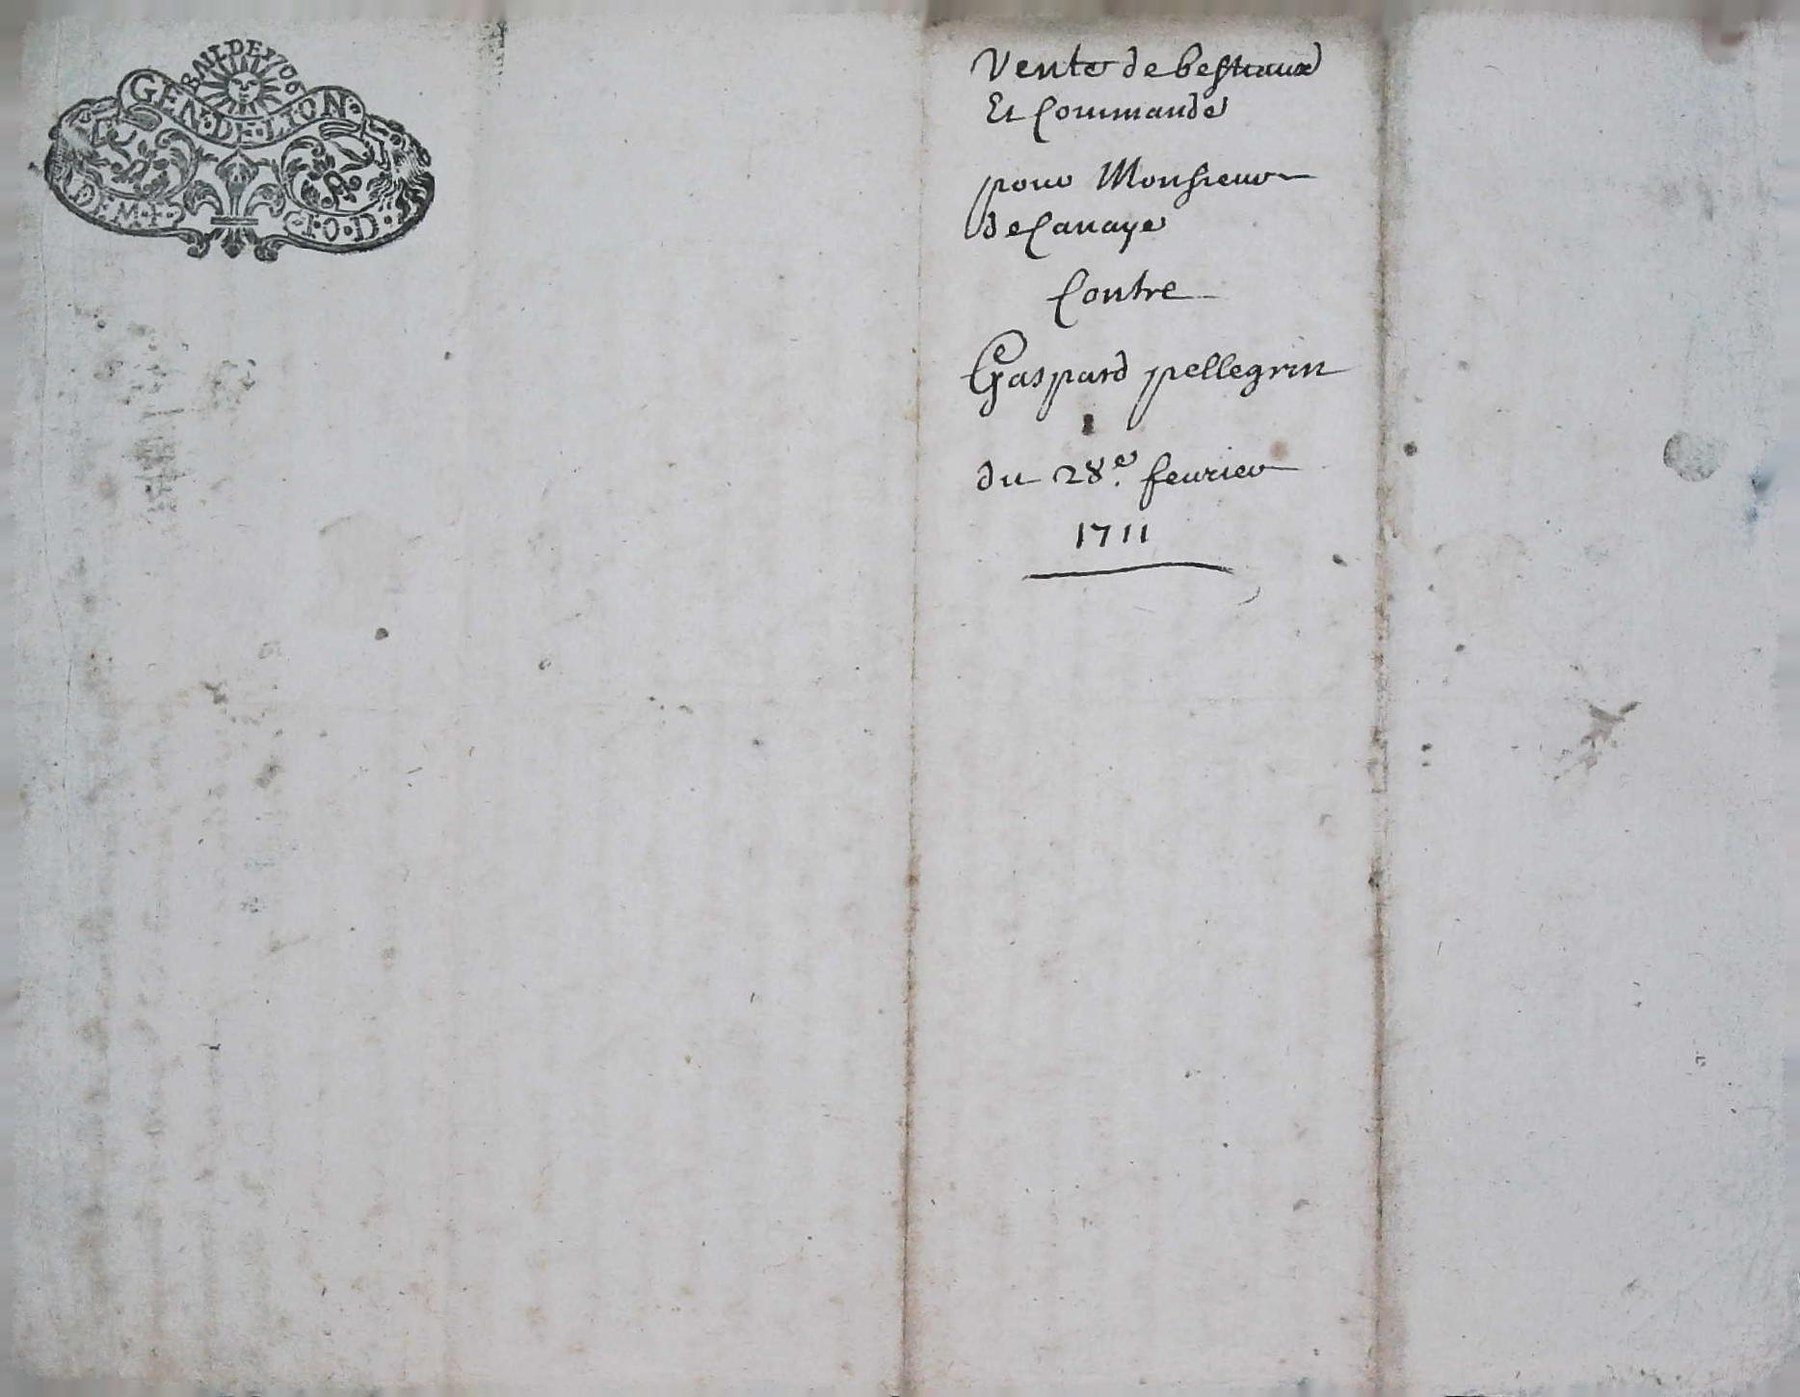 BAIL DE 1706
GEN·DE·LION·
DEM·F· ·I·O·D·
Vente de bestiaux
Et Commande
pour Monsieur
de Canaye
Contre
Gaspard pellegrin
du 28e. feurier
1711